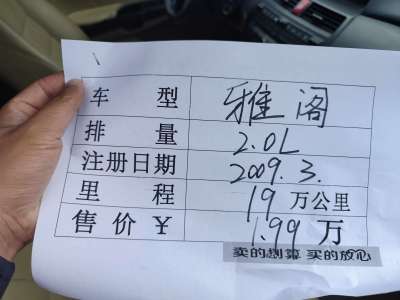 车型 雅阁
排量 2.0L
注册日期 2009.3.
里程 19 万公里
售价¥ 1.99 万
卖的划算 买的放心